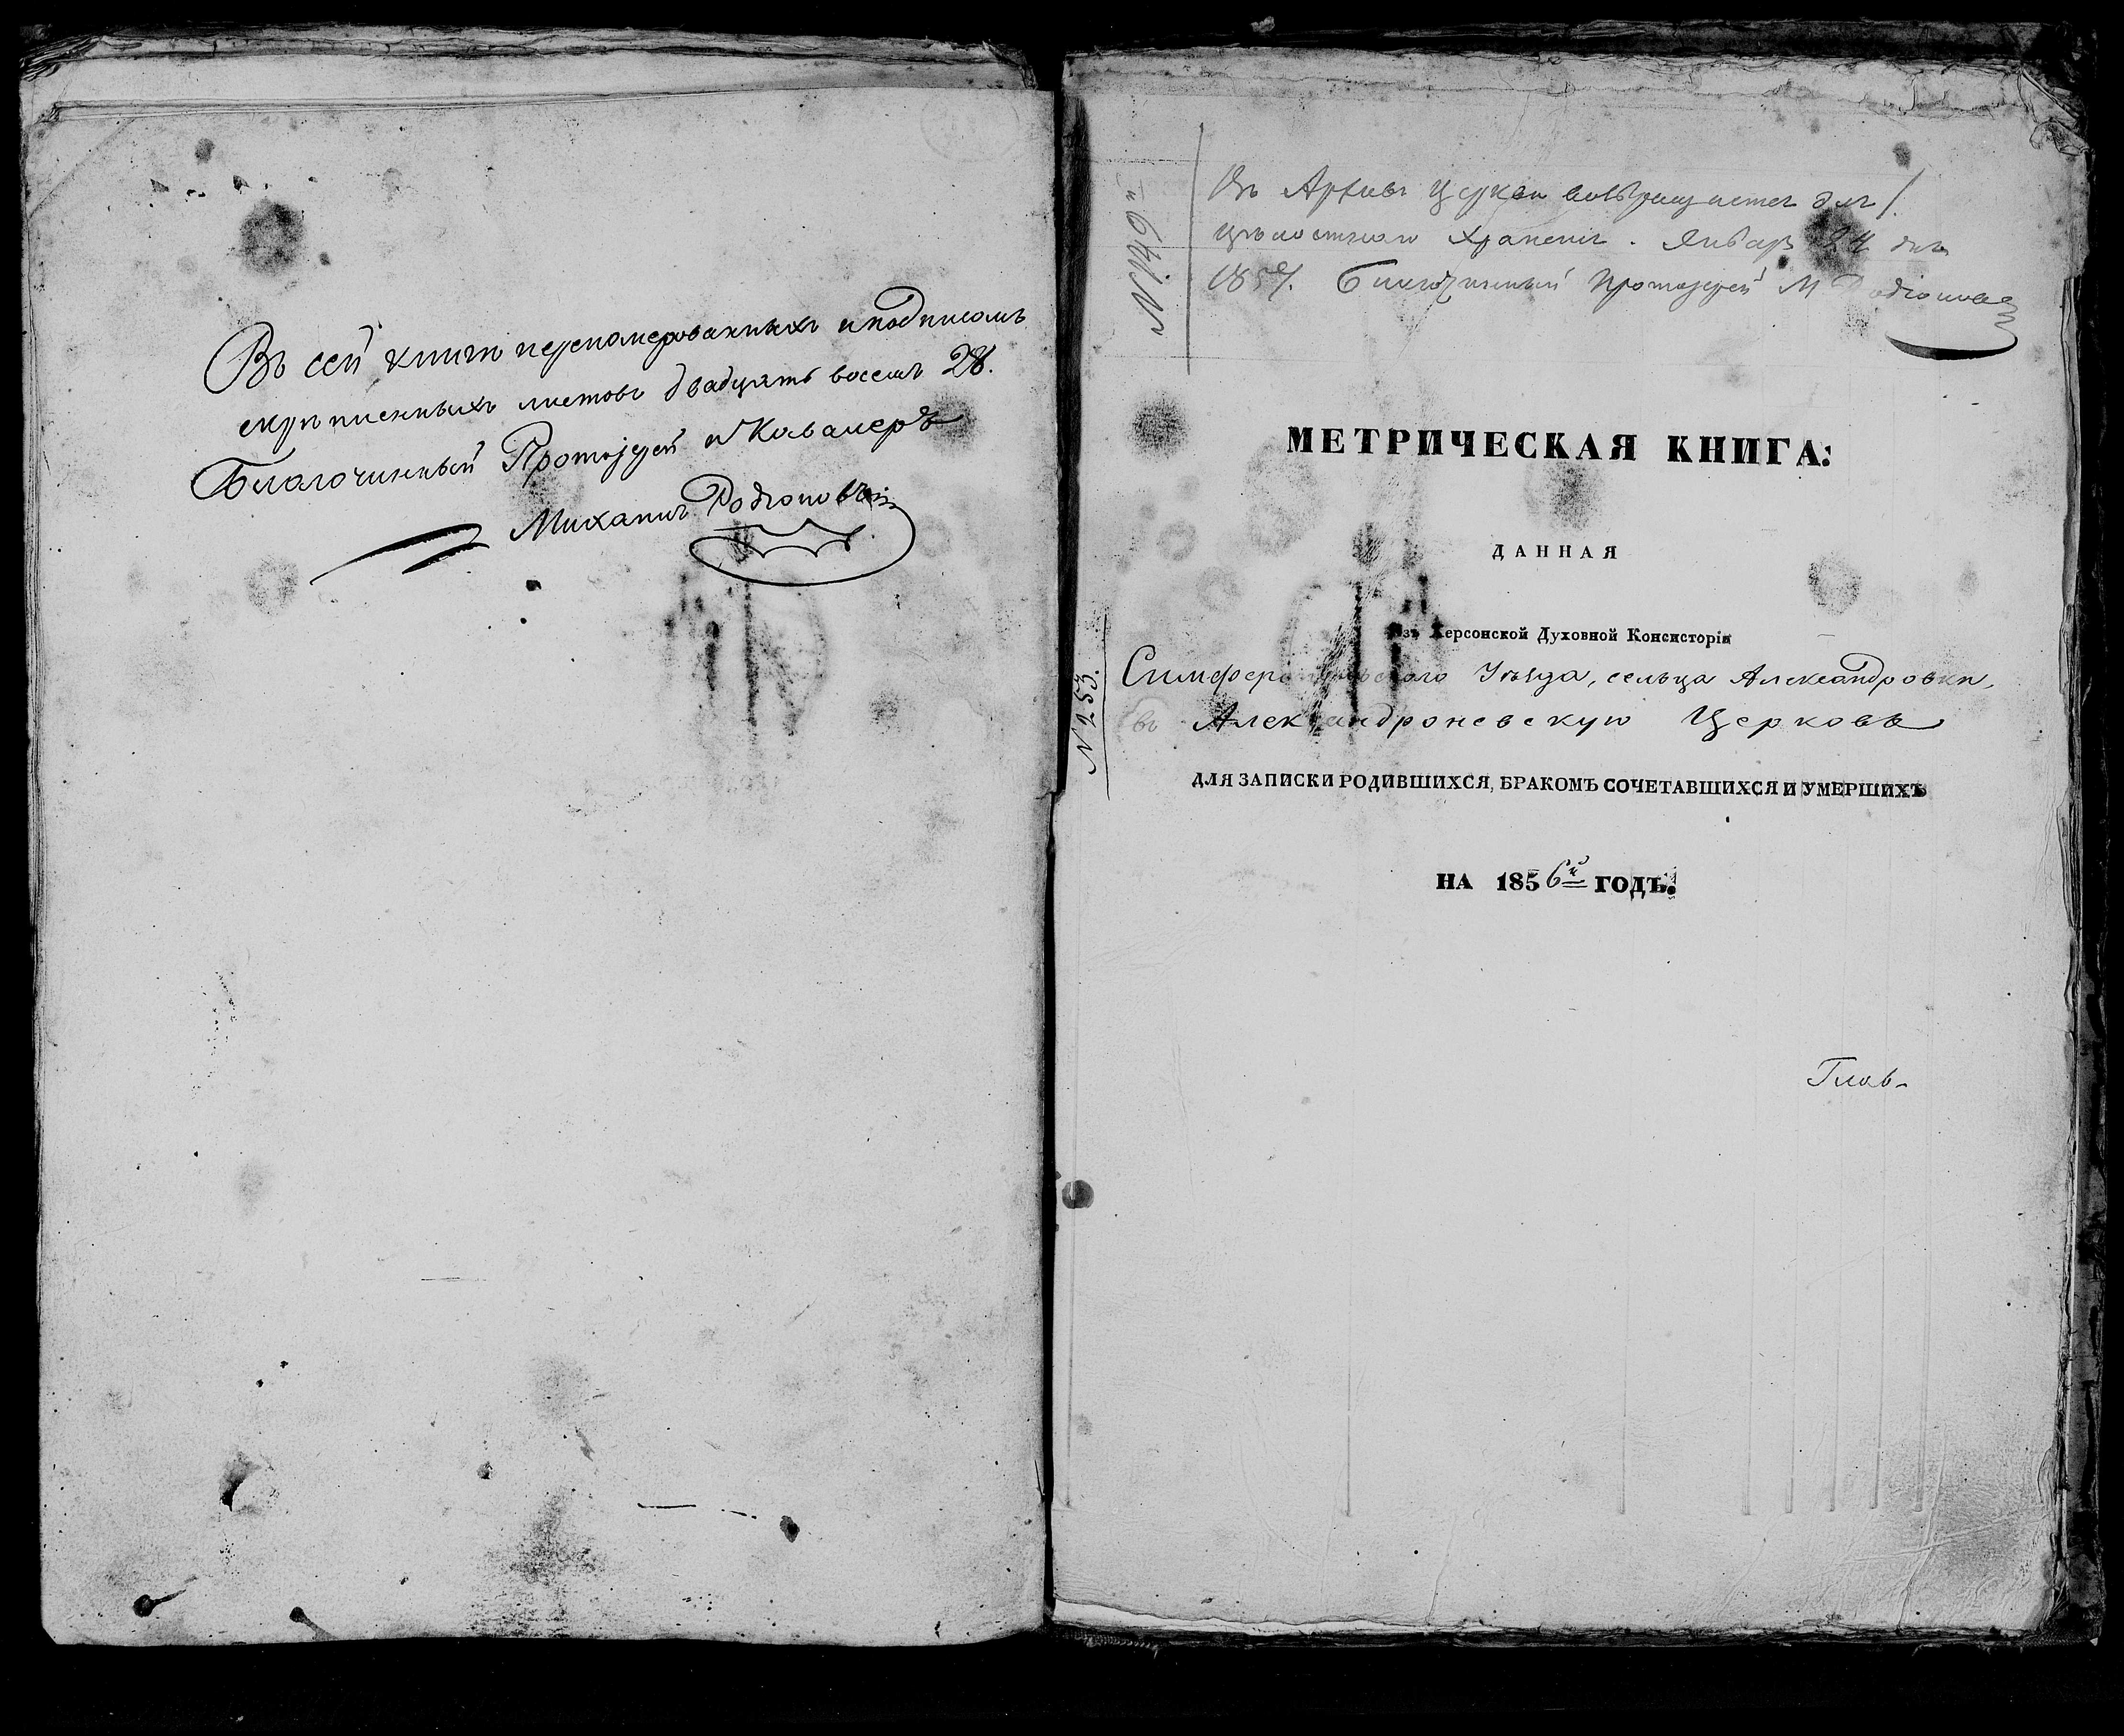 Въ сей книги перепомерованныхъ иподписомъ
скрепленныхъ листовъ двадцать восемь 28.
Благочинный Протоjерей и Кавалеръ
Михаилъ Родіоновъ
N 146й
Въ Архивъ Церкви возвращается для
цѣлостнаго храненія. Январ 24 дня
1857. Благочинный Протоjерей М Родіоновъ
МЕТРИЧЕСКАЯ КНИГА:
ДАННАЯ
изъ Херсонской Духовной Консисторіи
Симферопольскаго Уѣзда, сельца Александровки,
въ Александроневскую Церковь
N 253.
ДЛЯ ЗАПИСКИ РОДИВШИХСЯ, БРАКОМЪ СОЧЕТАВШИХСЯ И УМЕРШИХЪ
НА 1856й ГОДЪ.
Глав-